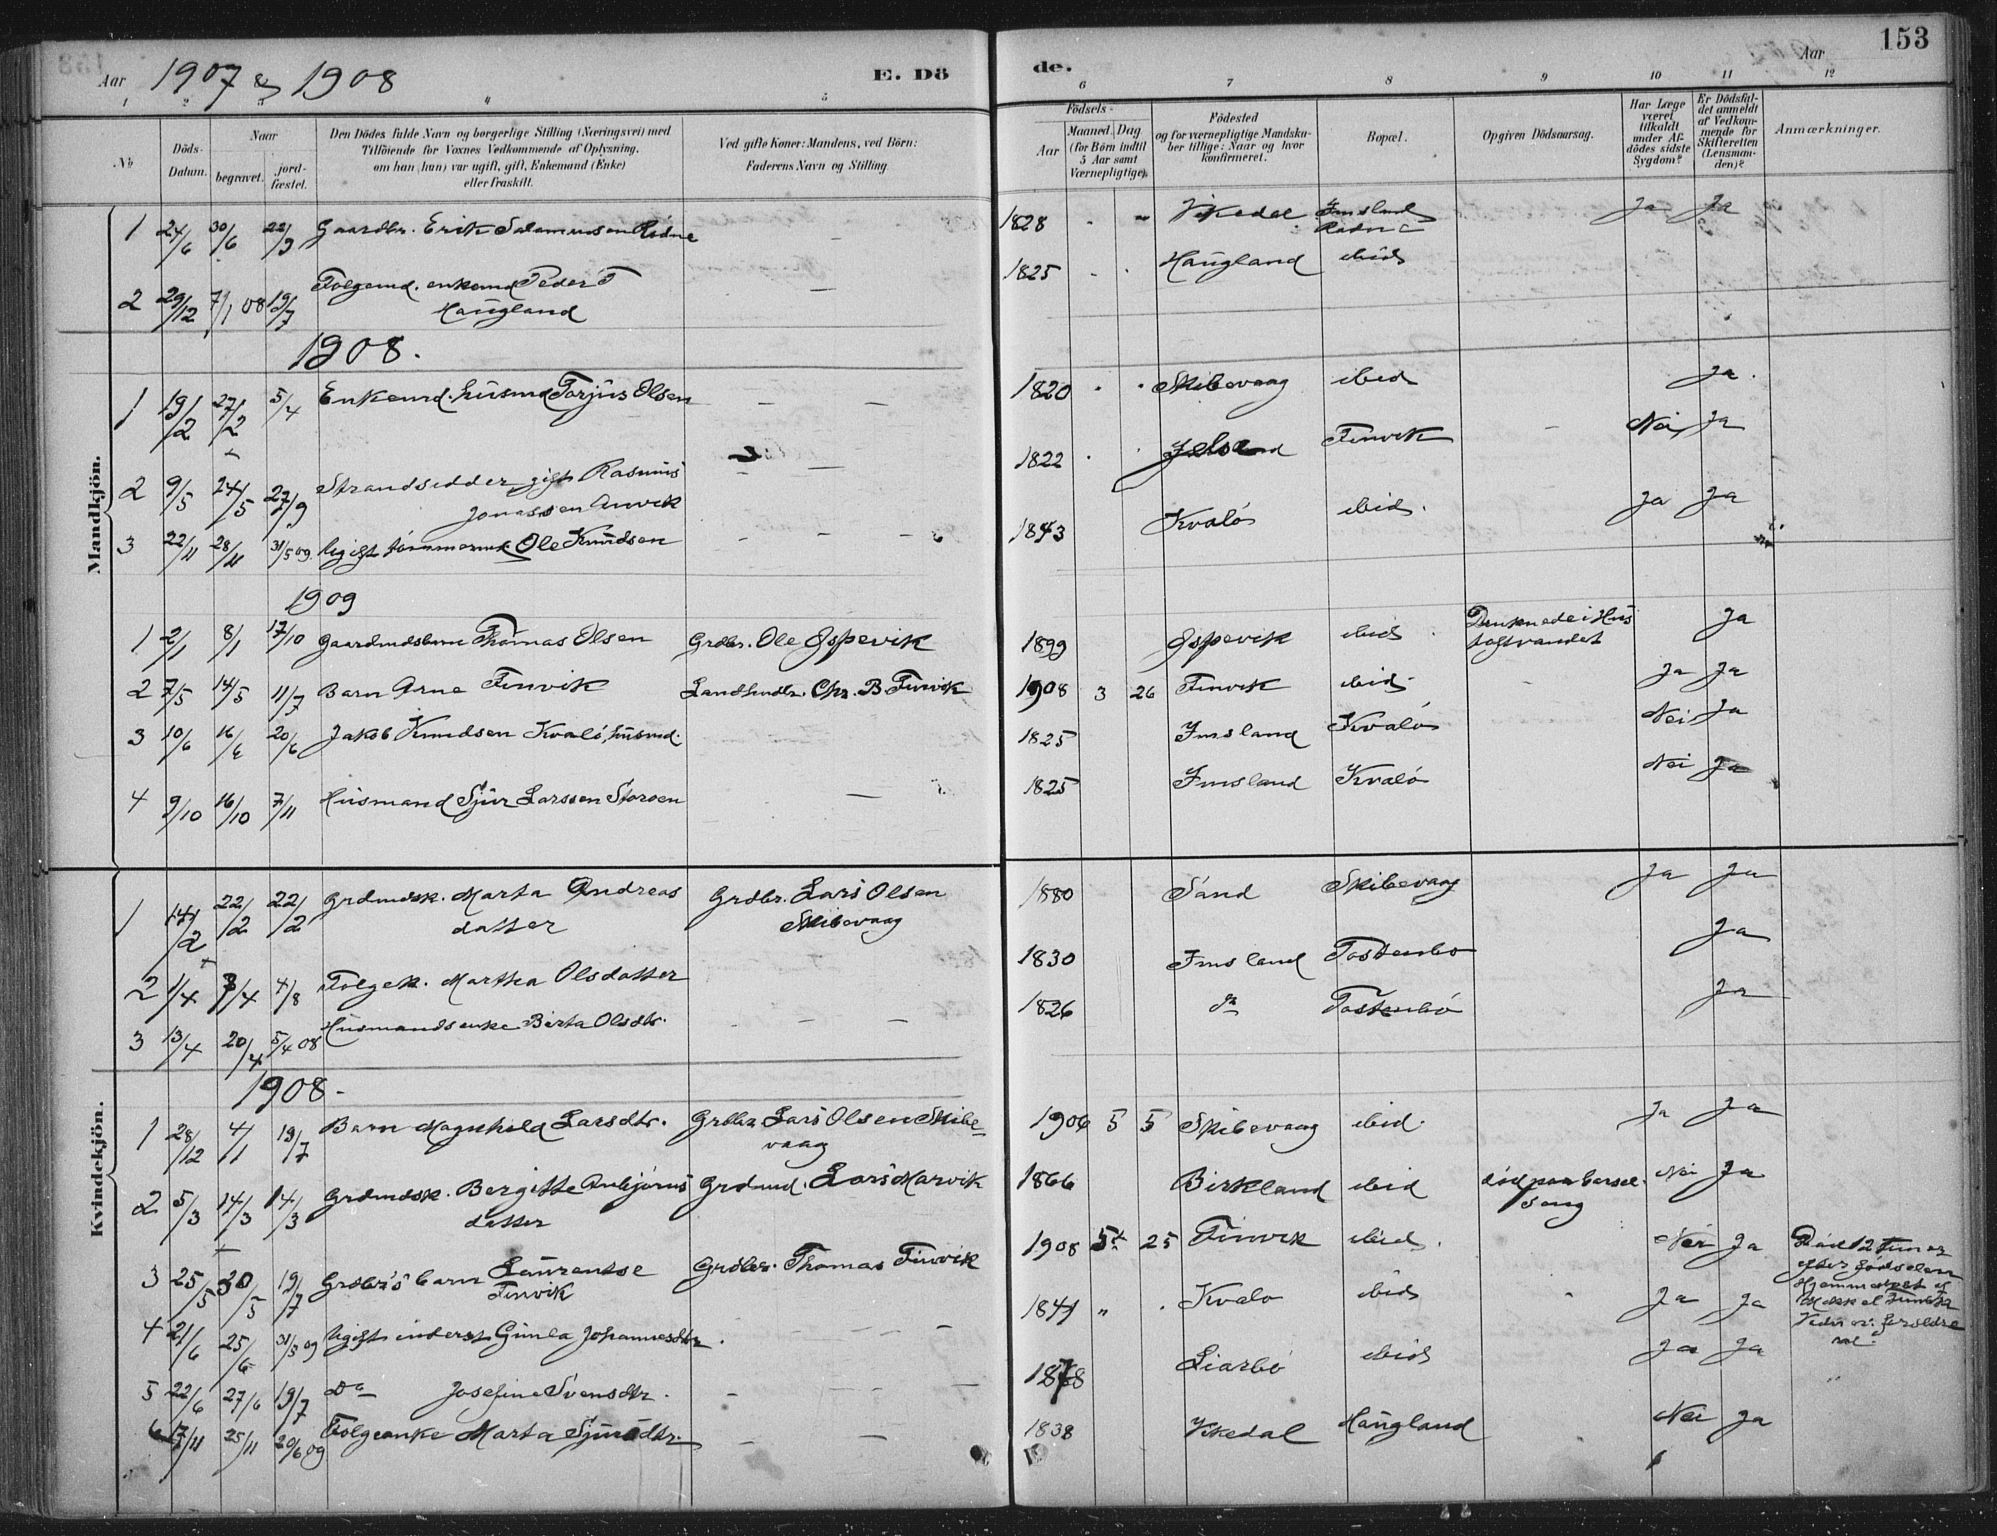 153
Aar 1907 & 1908 E. Dö
de. Aar
1 2 3 4 5
6 7 8 9 10 11 12
No
Döds-
Datum.
Naar
begravet. jord-
fæstet.
Den Dödes fulde Navn og borgerlige Stilling (Næringsvei) med
Tilföiende for Voxnes Vedkommende af Oplysning,
om han (hun) var ugift, gift, Enkemand (Enke)
eller fraskilt.
Ved gifte Koner: Mandens, ved Börn:
Faderens Navn og Stilling.
Födsels-
Aar
Maaned. Dag
(for Börn indtil
5 Aar samt
Værnepligtige).
Födested
og for værnepligtige Mandska-
ber tillige: Naar og hvor
konfirmeret.
Bopæl.
Opgiven Dödsaarsag.
Har Læge
været
tilkaldt
under Af-
dödes sidste
Sygdom?
Er Dödsfal-
det anmeldt
af Vedkom-
mende for
Skifteretten
(Lensman-
den)?
Anmærkninger.
Mandkjön.
1 24/6 30/6 22/9 Gaardbr. Erik Salamunsen Rödne — 1828 - - Vikedal Imsland Ja Ja
Rödne
2 29/12 7/1 08 19/7 Folgemd. enkemd Peder T — 1825 - - Haugland ibid
Haugland
1908.
1 19/2 27/2 5/4 Enkemd. husmd Torjus Olsen — — 1820 - - Skibevaag ibid Ja.
2 9/5 24/5 27/9 Strandsidder gift Rasmus — — 1822 - - Jelsa Finvik - Nei Ja
Jonassen Anvik
3 22/11 28/11 31/5 09 Ugift tömmermd Ole Knudsen - - - 1843 Kvalö ibid. Ja Ja
1909
1 2/1 8/1 17/10 Gaardmdsbarn Thomas Olsen Grdbr. Ole Espevik 1899 Espevik ibid. Druknede i Hus Ja
toftvandet
2 7/5 14/5 11/7 Barn Arne Finvik Landhndlr. Chr. B. Finvik 1908 3 26 Finvik ibid. - Ja Ja
3 10/6 16/6 20/6 Jakob Knudsen Kvalö, husmd. 1825 Imsland Kvalö Nei Ja
4 9/10 16/10 7/11 Husmand Sjur Larssen Storöen — — 1825 Imsland Kvalö Nei Ja
Kvindekjön.
1 14/2 22/2 22/2 Grdmdsk. Marta Andreas Grdbr. Lars Olsen 1880 Sand Skibevaag Ja Ja
datter Skibevaag
2 1/4 7/4 4/8 Folgek. Martha Olsdatter 1830 Imsland Tostenbö Ja
3 13/4 20/4 5/4 08 Husmandsenke Berta Olsdtr. - — — 1826 do Tostenbö Ja
1908.
1 28/12 4/1 19/7 Barn Magnhild Larsdtr. Grdbr. Lars Olsen Skibe- 1906 5 5 Skibevaag ibid. Ja Ja
vaag
2 5/3 14/3 14/3 Grdmdsk. Bergitte Anbjörns Grdmd. Lars Marvik 1866 Birkland ibid död paa barsel- Nei Ja
datter seng
3 25/5 30/5 19/7 Grdbr's barn Laurentse Grdbr. Thomas Finvik 1908 5 25 Finvik ibid. Nei Ja Död 12 timer
Finvik efter födselen
Hjemmedöbt af
4 21/6 25/6 31/5 09 Ugift inderst Gunla Johannesdtr. - - - 1841 " . Kvalö ibid - Ja Ja
5 22/6 27/6 19/7 Do Josefine Svensdtr. - — — 1878 Liarbö ibid Ja Ja
6 17/11 25/11 20/6 09 Folgeenke Marta Sjursdtr. - — 1838 Vikedal Haugland Nei Ja